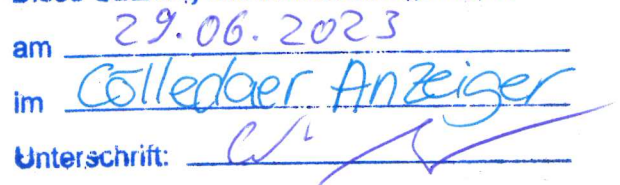 am 29.06.2023
im Cölledaer Anzeiger
Unterschrift: